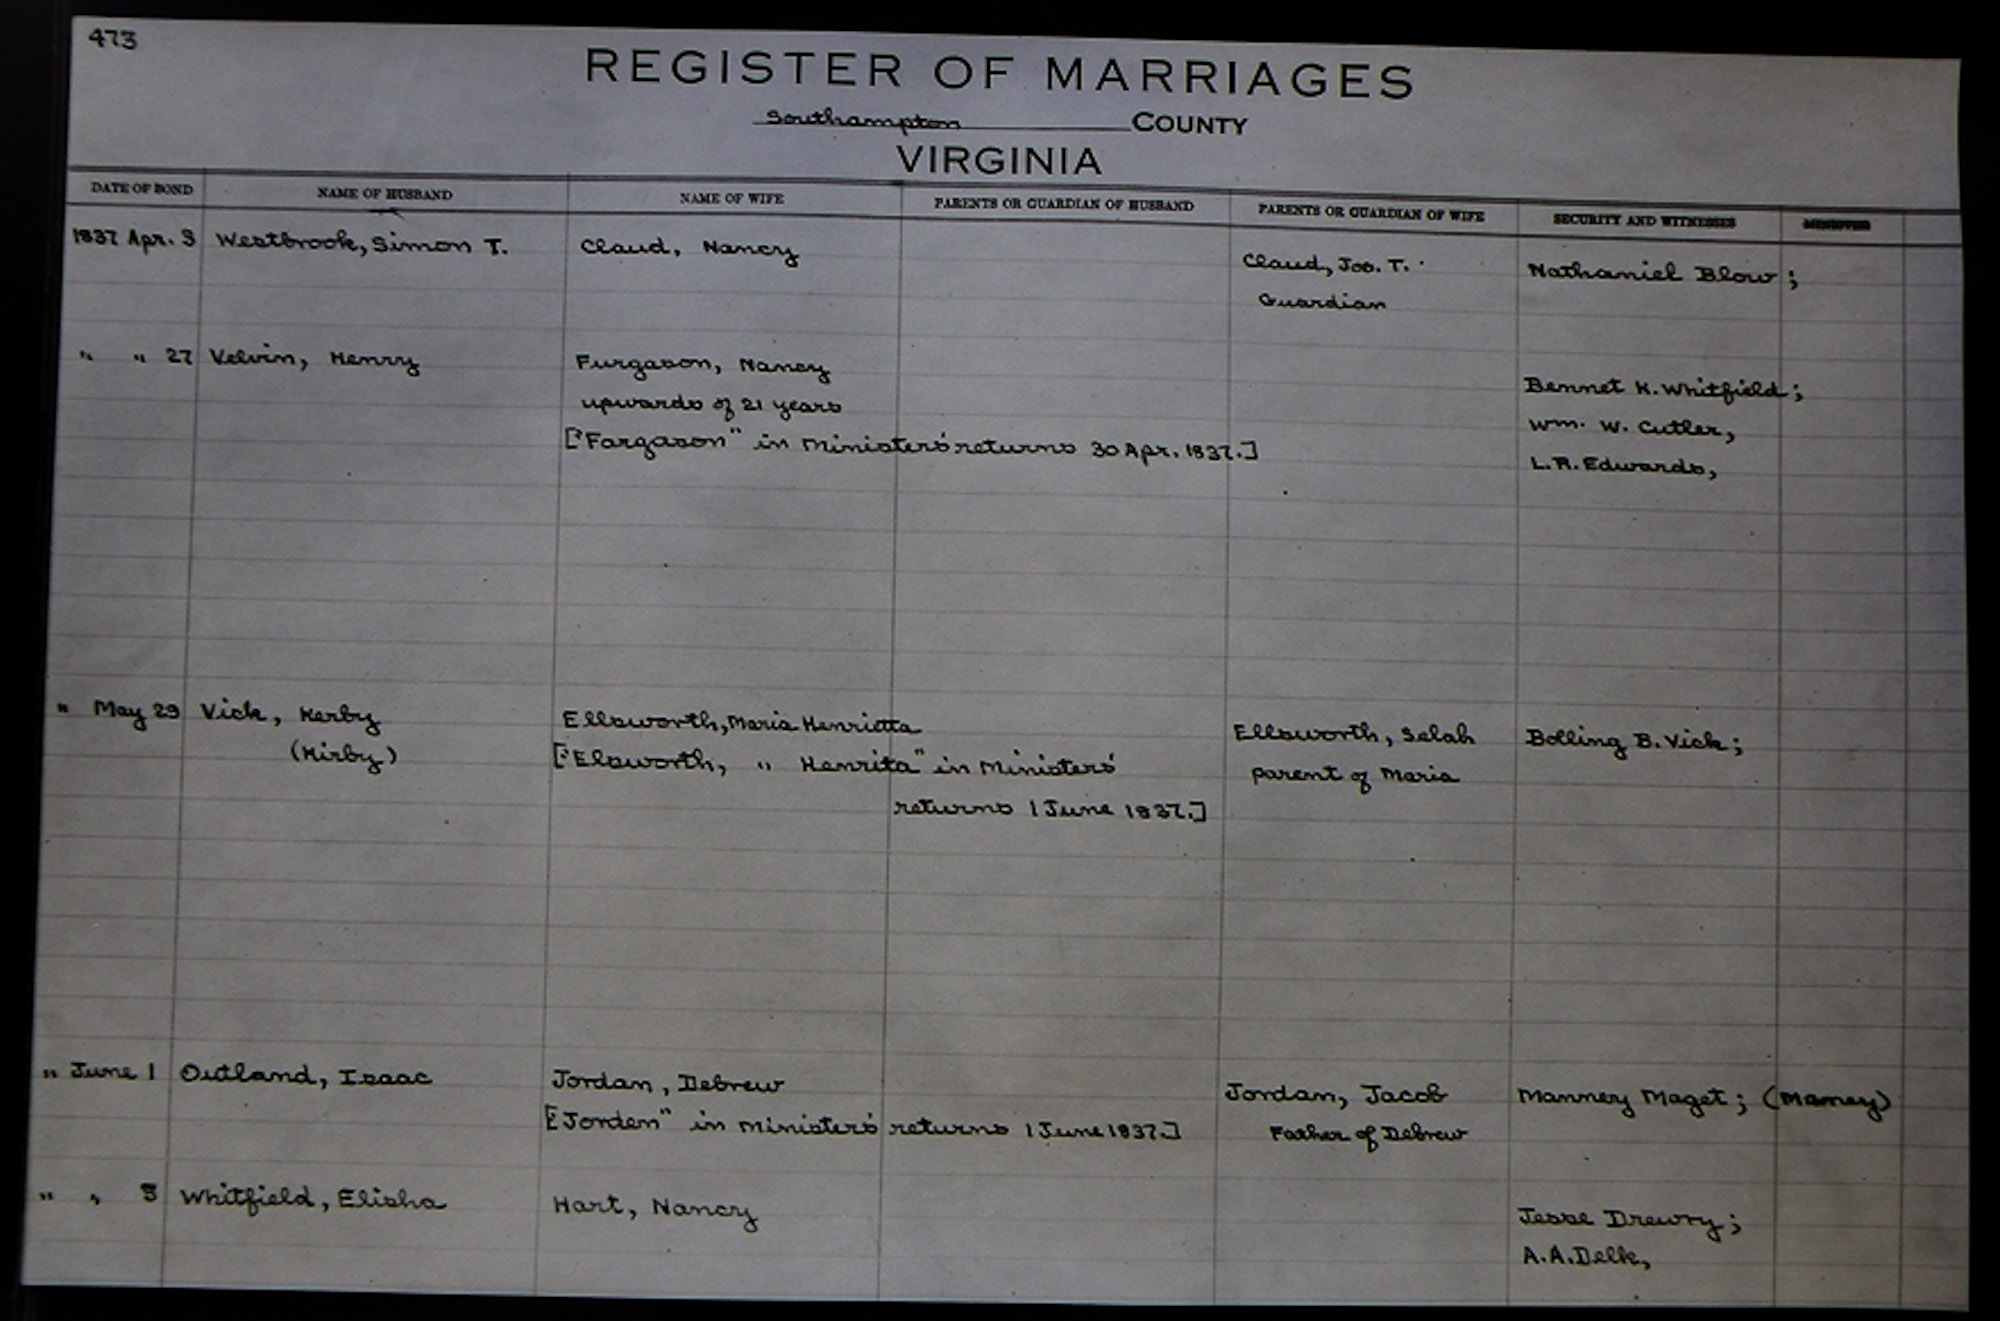 473
REGISTER OF MARRIAGES
Southampton COUNTY
VIRGINIA
DATE OF BOND NAME OF HUSBAND NAME OF WIFE PARENTS OR GUARDIAN OF HUSBAND PARENTS OR GUARDIAN OF WIFE SECURITY AND WITNESSES MINISTER
1837 Apr. 3 Westbrook, Simon T. Claud, Nancy Claud, Jos. T. Nathaniel Blow;
Guardian
" " 27 Velvin, Henry Furgason, Nancy Bennet K. Whitfield;
upwards of 21 years Wm. W. Cutler,
["Fargason" in ministers' returns 30 Apr. 1837.] L.R. Edwards,
" May 29 Vick, Kerby Ellsworth, Maria Henrietta Ellsworth, Selah Bolling B. Vick;
(Kirby) ["Elsworth, " Henrita" in Ministers' parent of Maria
returns 1 June 1837.]
" June 1 Outland, Isaac Jordan, Debrew Jordan, Jacob Manney Maget; (Mamey)
["Jorden" in ministers' returns 1 June 1837.] Father of Debrew
" " 3 Whitfield, Elisha Hart, Nancy Jesse Drewry;
A.A. Delk,